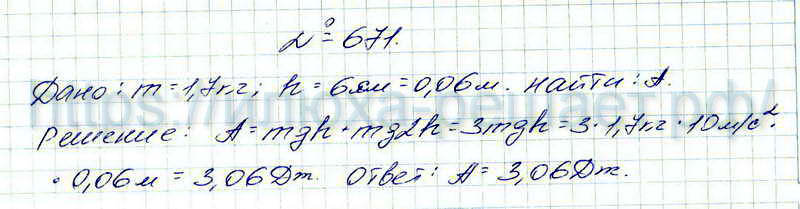 № 671.
Дано: m = 1,7 кг; h = 6 см = 0,06 м. Найти: A.
Решение: A = mgh + mg2h = 3mgh = 3 · 1,7 кг · 10 м/с² ·
· 0,06 м = 3,06 Дж. Ответ: A = 3,06 Дж.